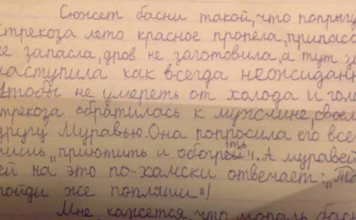 Сюжет басни такой, что попрыгу
стрекоза лето красное пропела, припасо
не запасла, дров не заготовила, а тут з
наступила как всегда неожидан
Чтобы не умереть от холода и гол
стрекоза обратилась к мужчине, свое
другу Муравью. Она попросила его все
лишь "приютить и обогреть". А муравей
ей на это по-хамски отвечает: "По
пойди же попляши"!
Мне кажется, что мораль бас